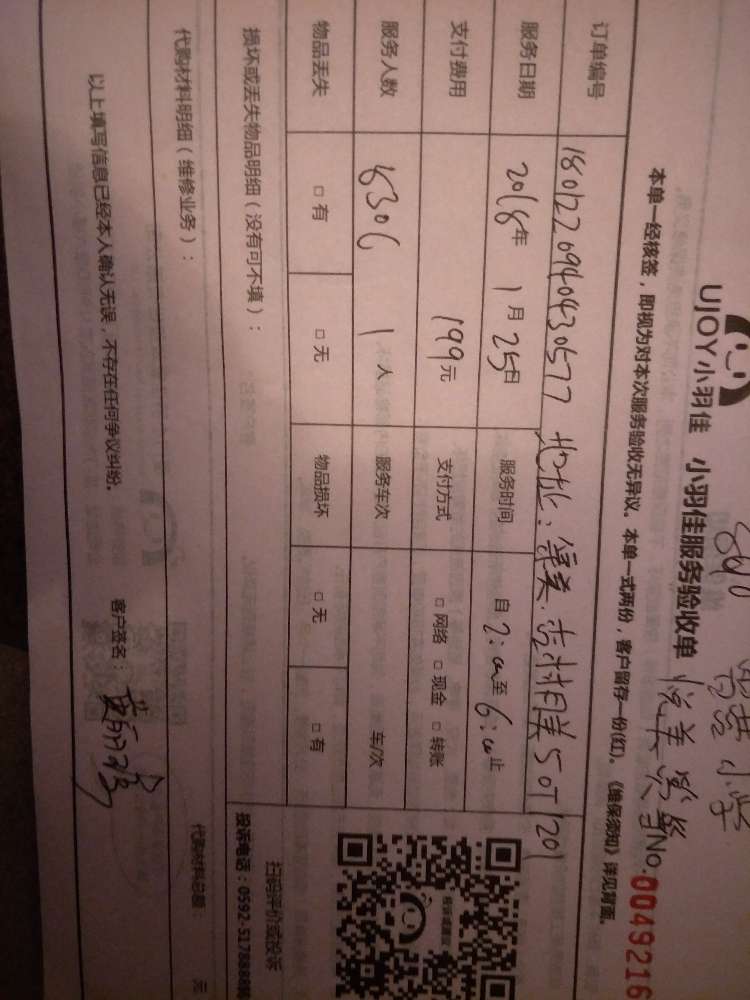 UJOY小羽佳 小羽佳服务验收单
No.0049216
本单一经核签，即视为对本次服务验收无异议。本单一式两份，客户留存一份(红)。《维保须知》详见背面。
订单编号 1801220940430577 地址：
服务日期 2018年 1月 25日 服务时间 自 2:00 至 6:00 止
支付费用 199元 支付方式 □ 网络 □ 现金 □ 转账
服务人数 8306 1 人 服务车次 车/次
物品丢失 □ 有 □ 无 物品损坏 □ 无 □ 有
损坏或丢失物品明细（没有可不填）：
扫码评价或投诉
投诉电话：0592-517888
代购材料明细（维修业务）：
代购材料总额： 元
以上填写信息已经本人确认无误，不存在任何争议纠纷。 客户签名：